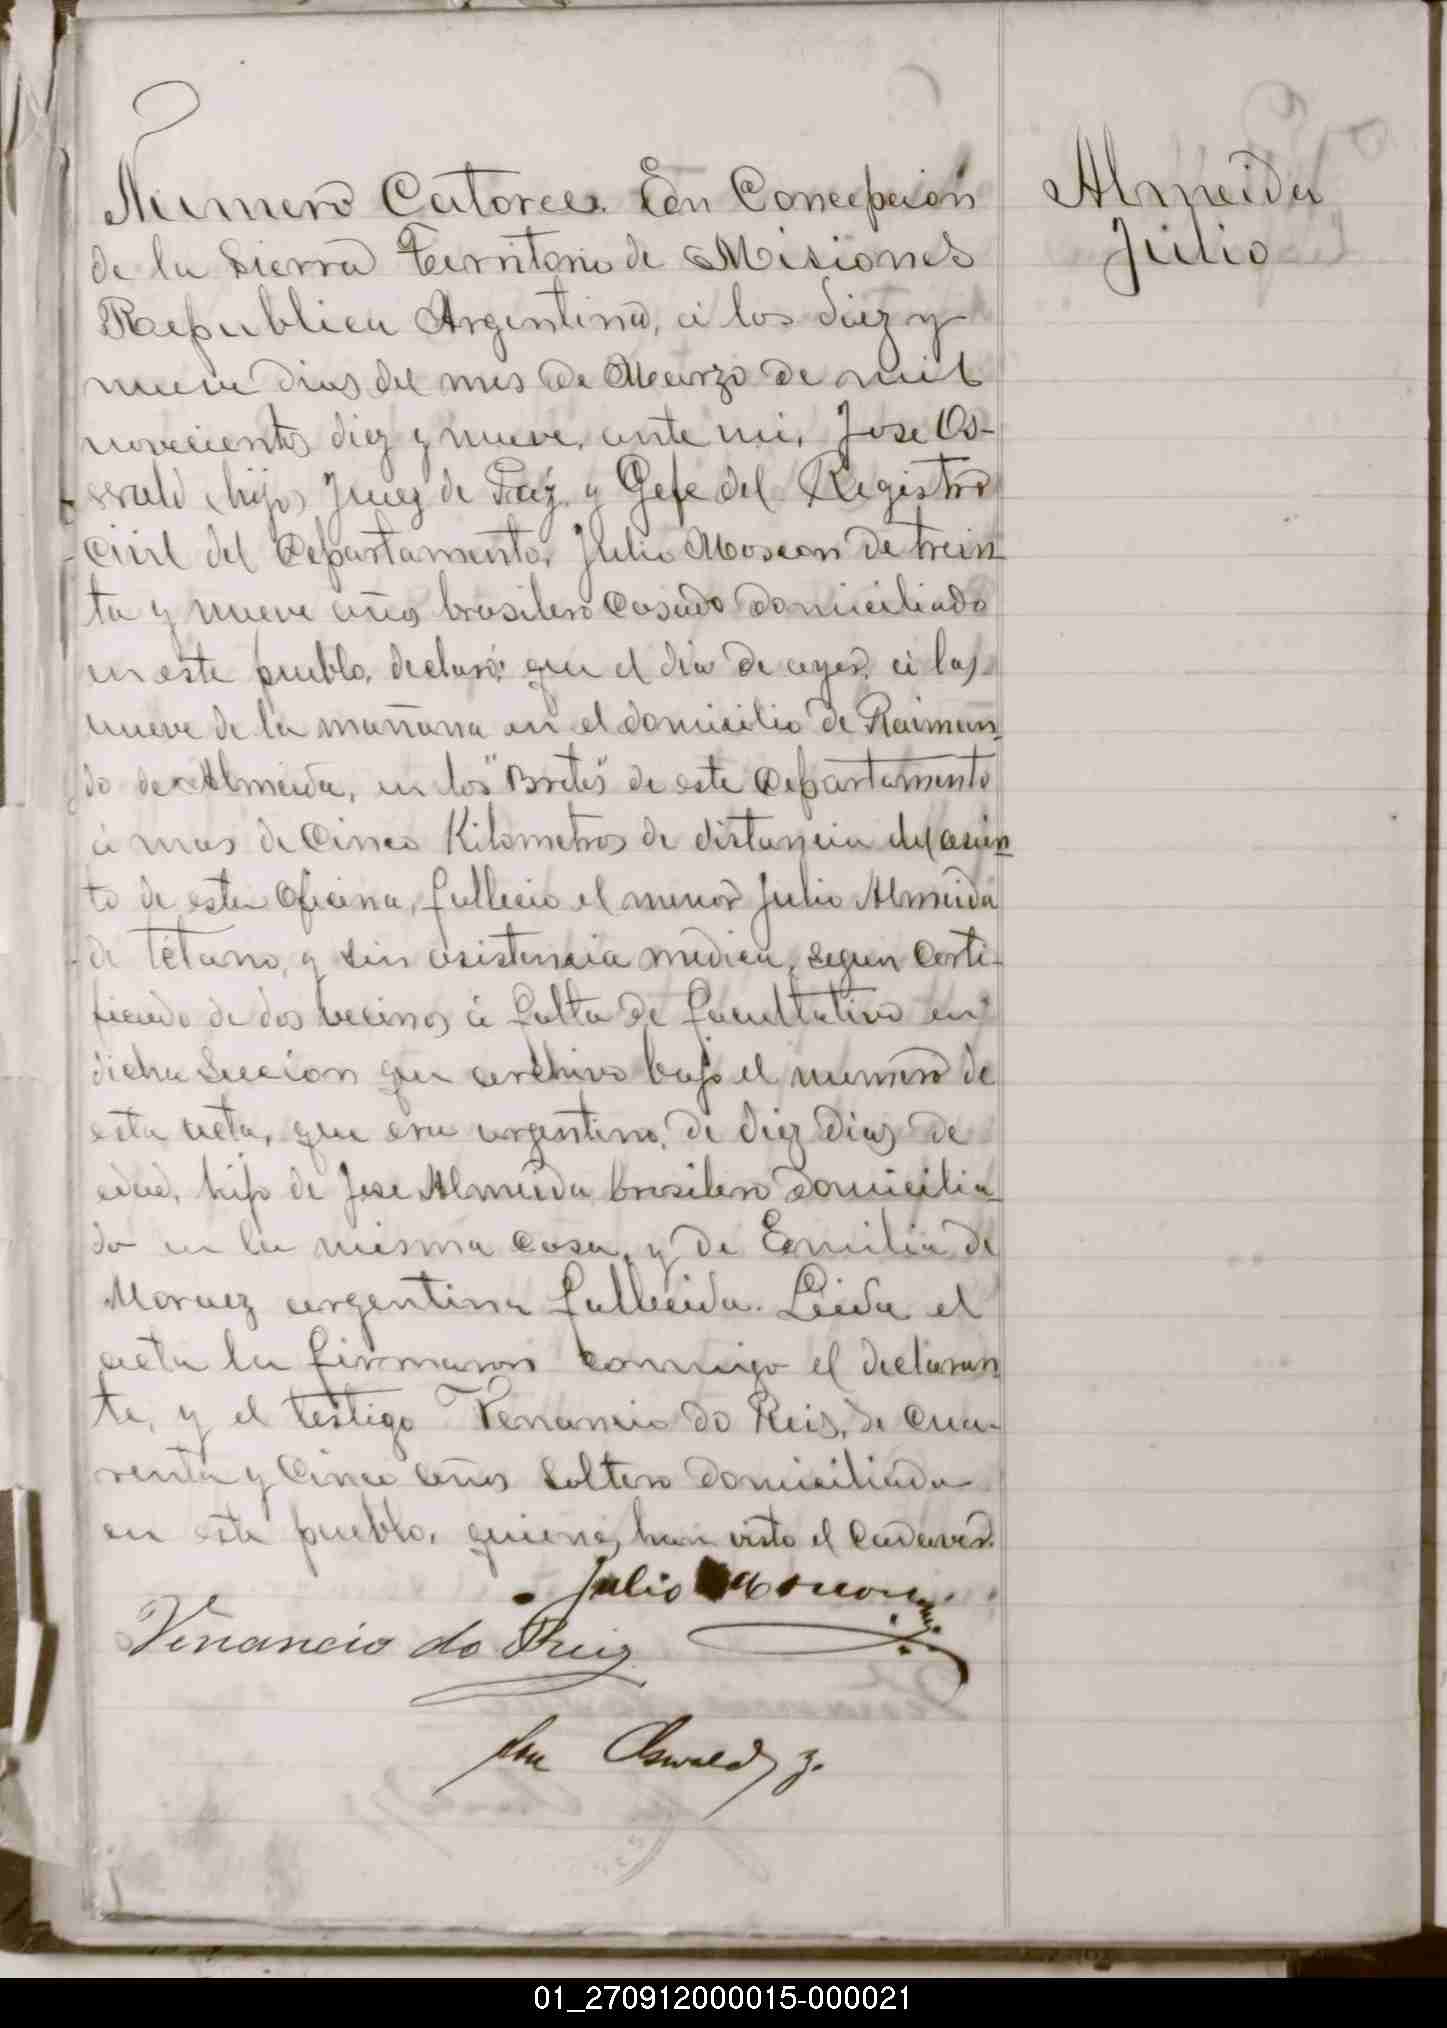 Numero Catorce. En Concepcion
de la Sierra Territorio de Misiones
Republica Argentina, á los diez y
nueve dias del mes de Marzo de mil
novecientos diez y nueve, ante mi, Jose Os-
wald (hijo) Juez de Paz y Gefe del Registro
Civil del Departamento, Julio Moscon de trein
ta y nueve años brasilero casado domiciliado
en este pueblo, declaró: que el dia de ayer, á las
nueve de la mañana en el domicilio de Raimun-
do de Almeida, en los "Bretes" de este Departamento
á mas de cinco Kilometros de distancia del asien
to de esta oficina, fallecio el menor Julio Almeida
de tétano, y sin asistencia medica, segun certi-
ficado de dos vecinos á falta de facultativo en
dicha Seccion que archivo bajo el numero de
esta acta, que era argentino, de diez dias de
edad, hijo de Jose Almeida brasilero domicilia-
do en la misma casa, y de Emilia de
Moraez argentina fallecida. Leida el
acta la firmaron conmigo el declaran
te, y el testigo Venancio do Reis, de cua-
renta y cinco años soltero domiciliado
en este pueblo, quienes han visto el cadaver.
Julio Moscon
Venancio do Reiz
Jose Oswald
Almeida
Julio
01_270912000015-000021